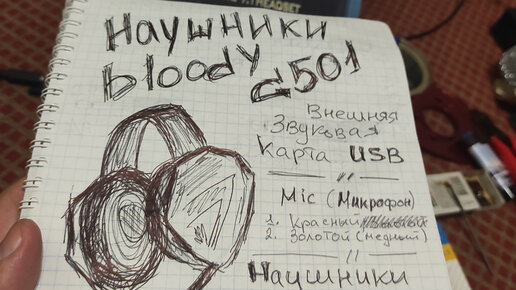 HEADSET
Наушники
bloody
G501
Внешняя
Звуковая
Карта USB
— 〃 —
Mic (Микрофон)
1. Красный
2. Золотой (медный)
— 〃 —
Наушники